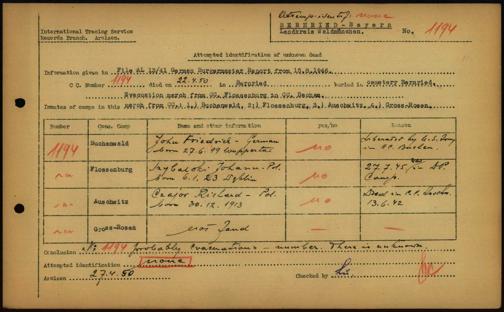 Attempt.identif. none
International Tracing Service
Records Branch. Arolsen.
BERNRIED - Bayern
Landkreis Waldmünchen.
No. 1194
Attempted identification of unknown dead
Information given in File AL 13/41 German Burgermeister Report from 15.8.1946.
1194 22.4.50
C C No. died on in Bernried. Buried in cemetery Bernried.
Evacuation march from CC. Flossenburg to CC. Dachau.
Inmates of camps in this march from CC. 1.) Buchenwald, 2.) Flossenburg, 3.) Auschwitz, 4.) Gross-Rosen.
Number Conc. Camp Name and other information yes/no Reason
1194 Buchenwald John Friedrich - German born 27.6.99 Wuppertal no Liberated by U.S. Army in
Flossenburg Johann - Pol. born 6.1.23 no 27.7.45 in D.P. Camp.
Auschwitz Richard - Pol. born 30.12.1913 no Died in C.C. 13.6.42
Gross-Rosen — —
Conclusion No 1194 probably evacuations - number. There is unknown.
Attempted identification none
Arolsen 27.4.50 Checked by